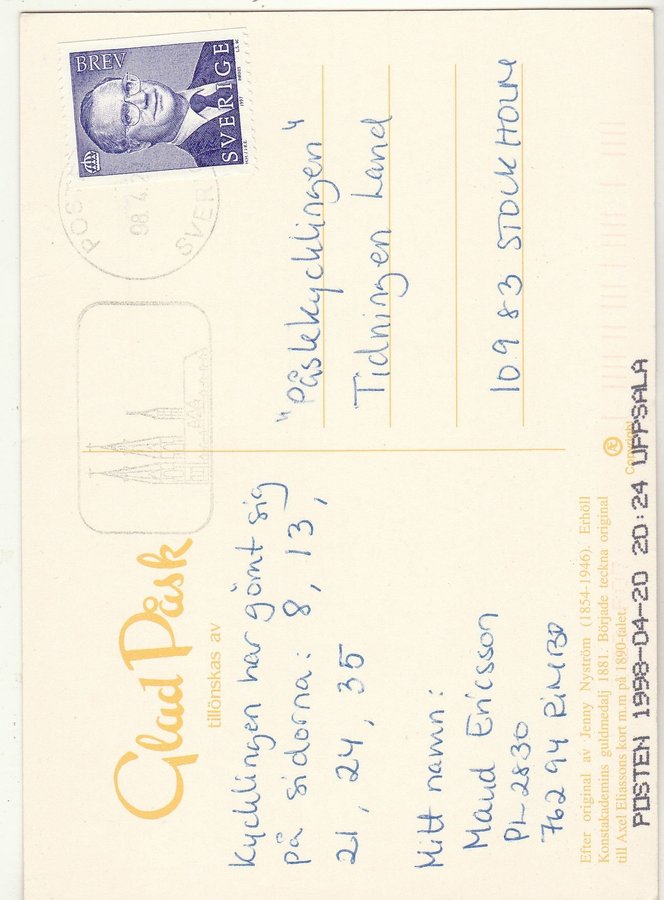 Glad Påsk
tillönskas av
Kycklingen har gömt sig
på sidorna: 8, 13,
21, 24, 35
Mitt namn:
Maud Ericsson
PL 2830
762 94 RIMBO
Efter original av Jenny Nyström (1854-1946). Erhöll
Konstakademins guldmedalj 1881. Började teckna original
till Axel Eliassons kort m.m på 1890-talet.
Copyright
BREV
SVERIGE
1997
POST
98.4.
SVERI
"Påskkycklingen"
Tidningen Land
109 83 STOCKHOLM
POSTEN 1998-04-20 20:24 UPPSALA